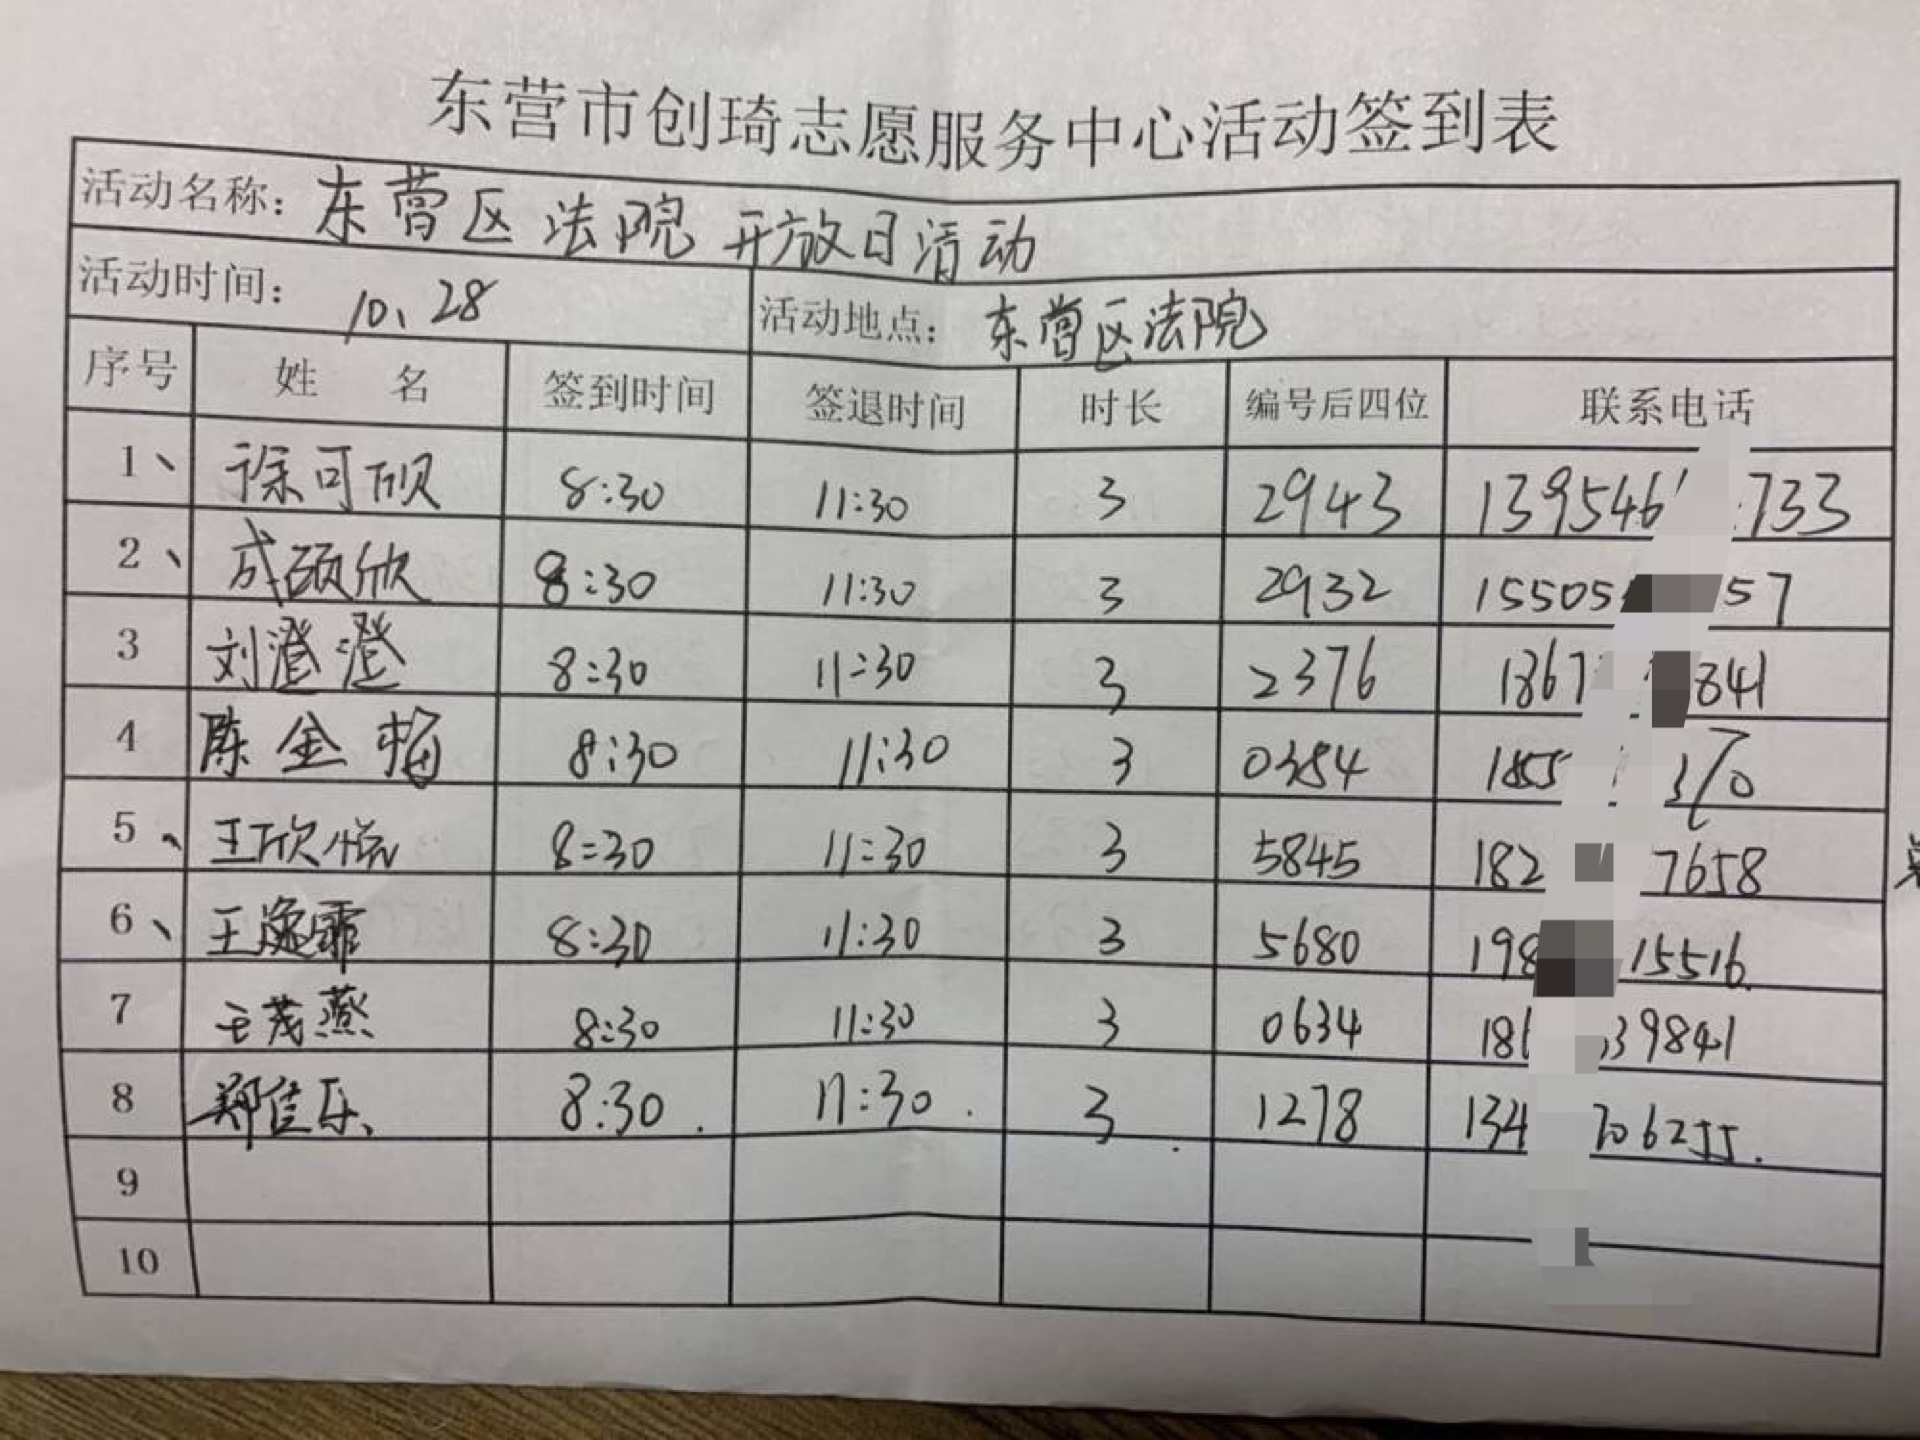 东营市创琦志愿服务中心活动签到表
活动名称：东营区法院开放日活动
活动时间：10、28 活动地点：东营区法院
序号 姓 名 签到时间 签退时间 时长 编号后四位 联系电话
1、 徐可颀 8:30 11:30 3 2943 1395461 733
2、 成硕欣 8:30 11:30 3 2932 15505 57
3 刘澄澄 8:30 11:30 3 2376 1867 841
4 陈金梅 8:30 11:30 3 0384 1855 370
5、 王欣悦 8:30 11:30 3 5845 182 7658
6、 王逸霏 8:30 11:30 3 5680 198 15516.
7 王茂燕 8:30 11:30 3 0634 186 39841
8 郑佳乐、 8:30. 11:30. 3. 1278 134 706255.
9
10